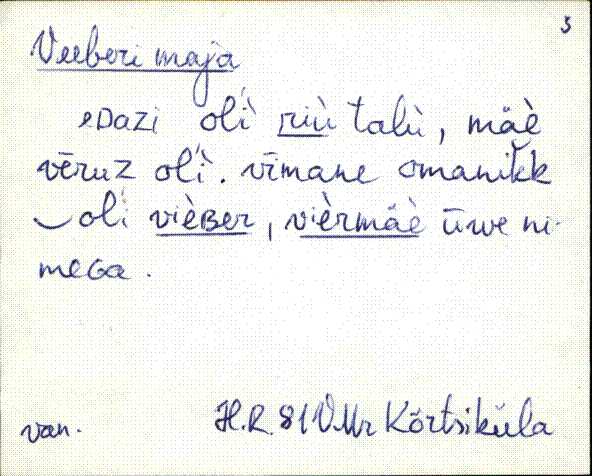 3
Veeberi maja
eᴅazi oĺì riù talù, mäè
vēruz oĺì. vīmane omanikk
oli vièʙer, vièrmäè ūwe ni-
meɢa.
van. H.R. 81 V.Mr Kõrtsiküla